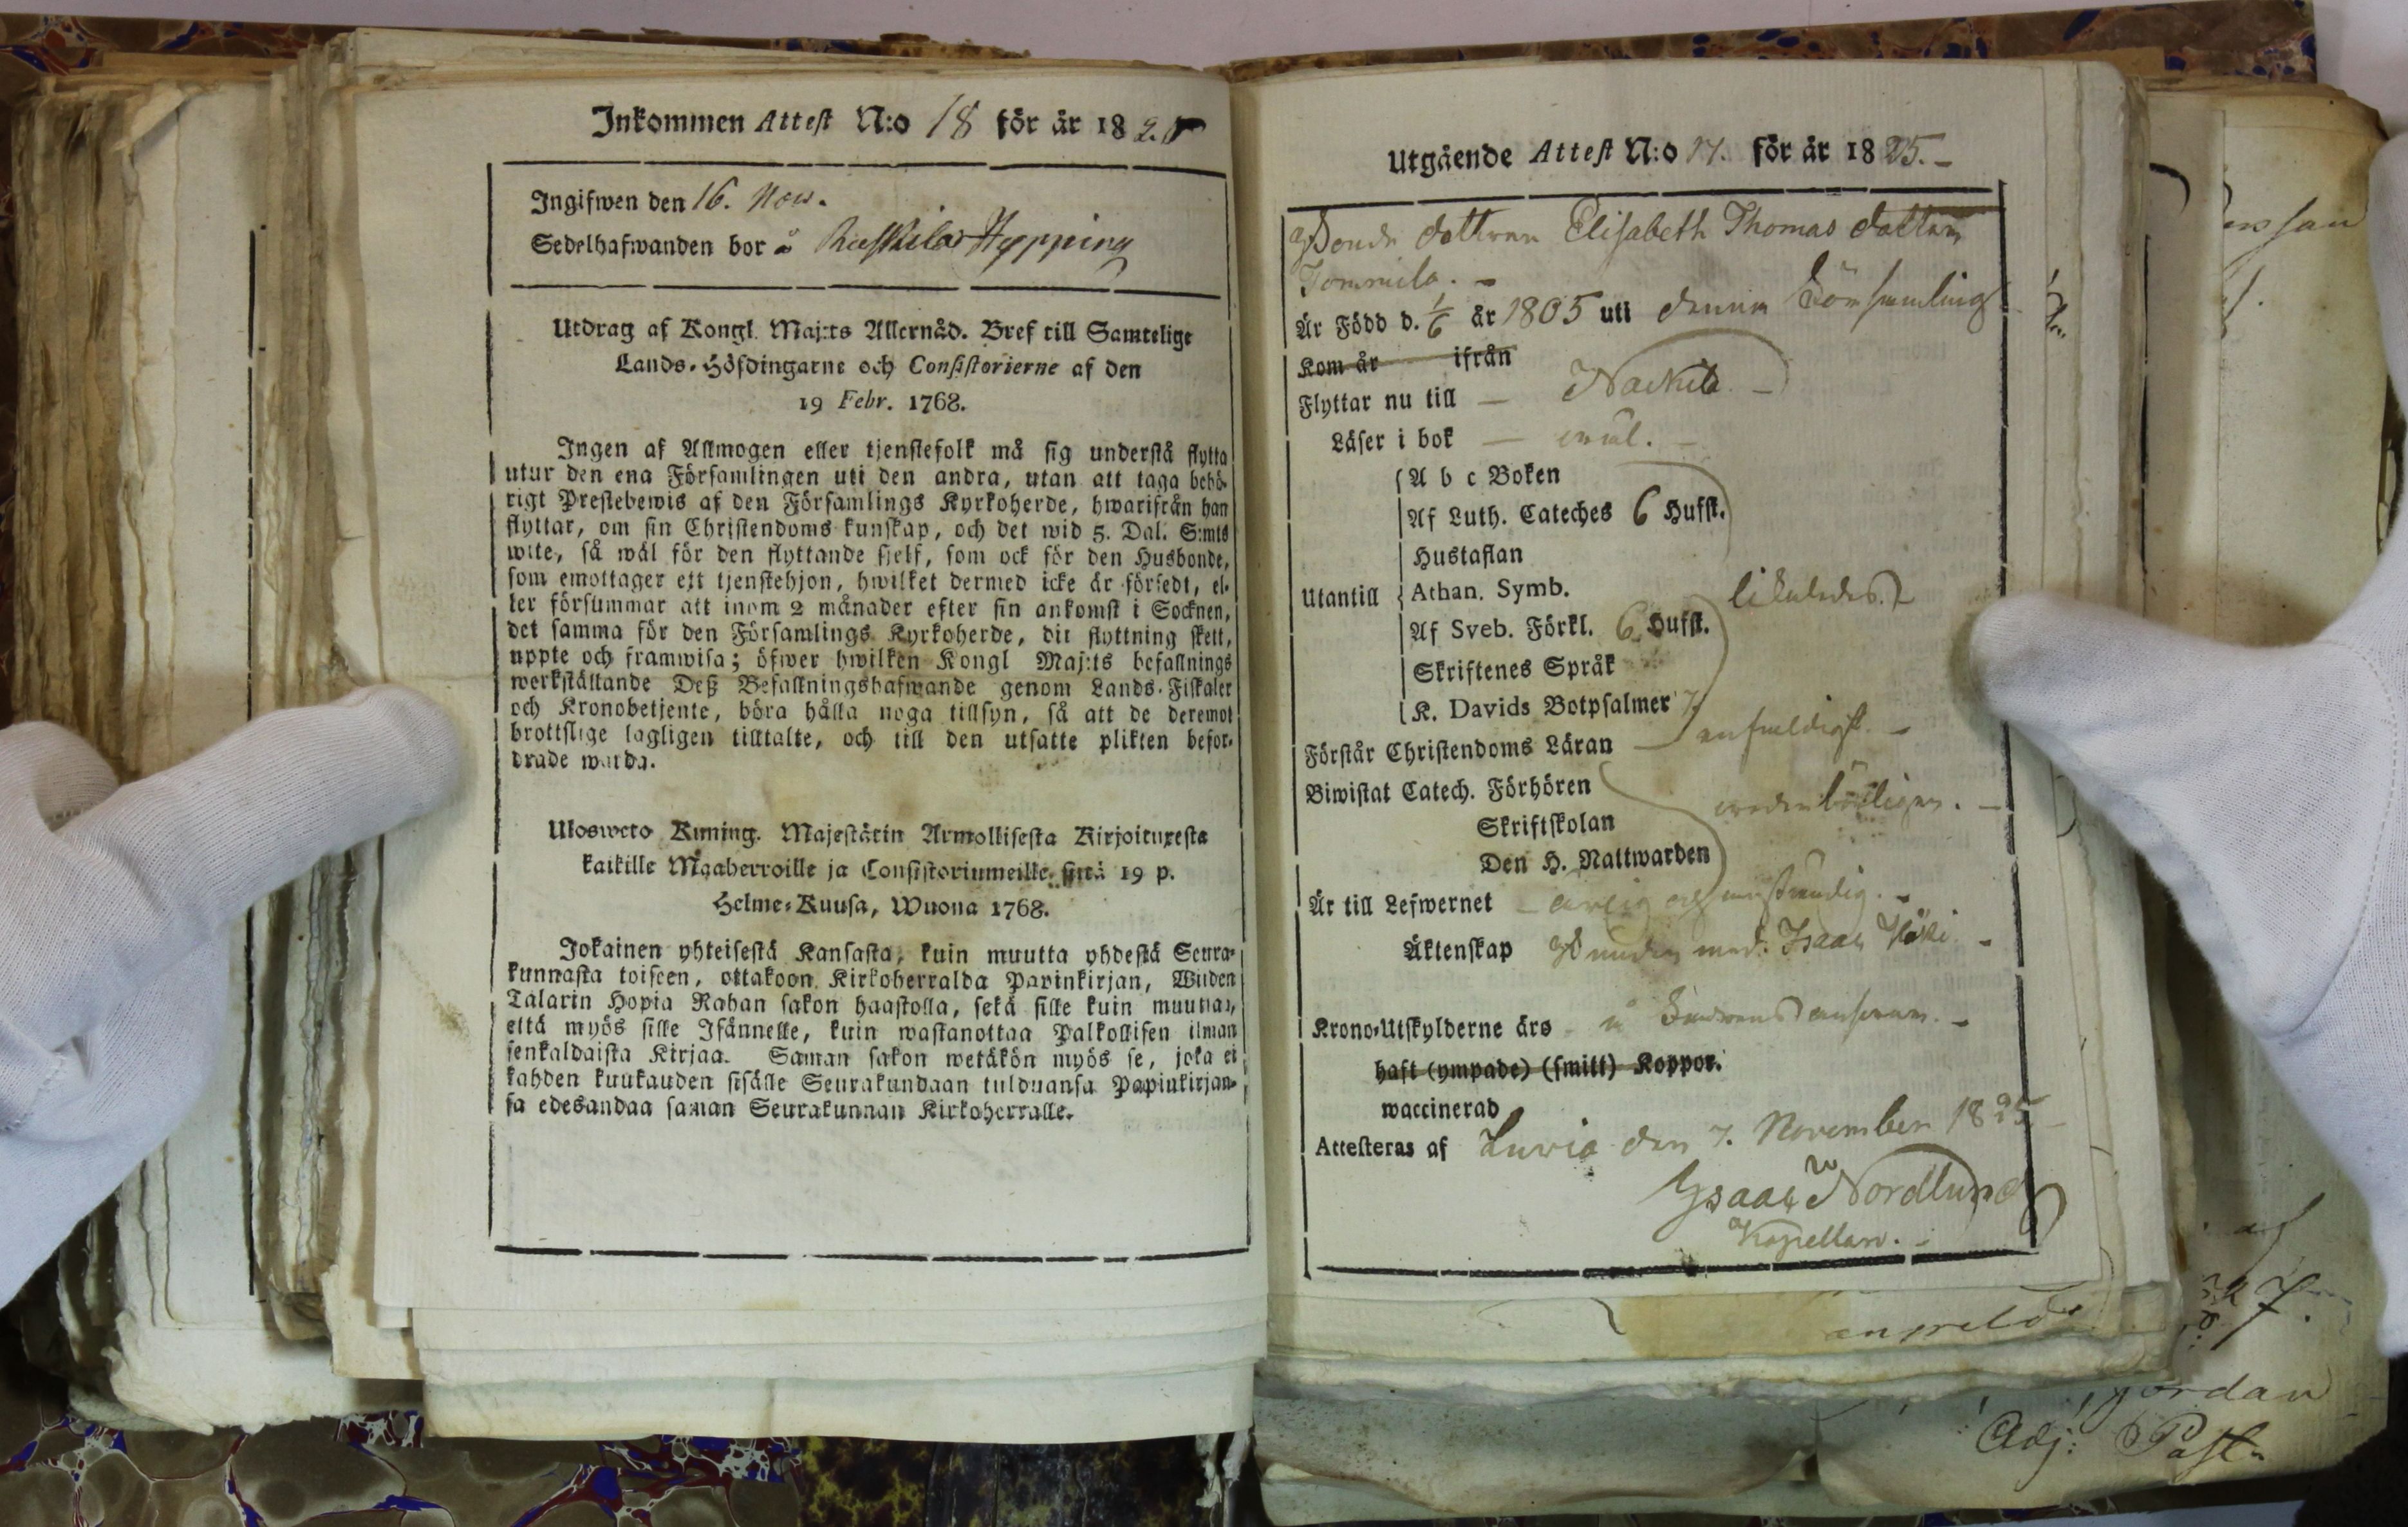 Inkommen Attest N:o 18 för år 182.5
Ingifwen den 16. Nov.
Sedelhafwanden bor å Hypping
Utdrag af Kongl. Maj:ts Allernåd. Bref till Samtelige
Lands-Höfdingarne och Consistorierne af den
19 Febr. 1768.
Ingen af Allmogen eller tjenstefolk må sig understå flytta
utur den ena Församlingen uti den andra, utan att taga behö-
rigt Prestebewis af den Församlings Kyrkoherde, hwarifrån han
flyttar, om sin Christendoms kunskap, och det wid 5. Dal. S:mts
wite, så wäl för den flyttande sjelf, som ock för den Husbonde,
som emottager ett tjenstehjon, hwilket dermed icke är försedt, el-
ler försummar att inom 2 månader efter sin ankomst i Socknen,
det samma för den Församlings Kyrkoherde, dit flyttning skett,
uppte och framwisa; öfwer hwilken Kongl Maj:ts befallnings
werkställande Deß Befallningshafwande genom Lands-Fiskaler
och Kronobetjente, böra hålla noga tillsyn, så att de deremot
brottslige lagligen tilltalte, och till den utsatte plikten befor-
drade warda.
Ulosweto Kuning. Majestätin Armollisesta Kirjoituxesta
kaikille Maaherroille ja Consistoriumeille, siitä 19 p.
Helme-Kuusa, Wuona 1768.
Jokainen yhteisestä Kansasta, kuin muutta yhdestä Seura-
kunnasta toiseen, ottakoon Kirkoherralda Papinkirjan, Wiiden
Talarin Hopia Rahan sakon haastolla, sekä sille kuin muuttaa,
että myös sille Isännelle, kuin wastanottaa Palkollisen ilman
senkaldaista Kirjaa. Saman sakon wetäkön myös se, joka ei
kahden kuukauden sisälle Seurakundaan tulduansa Papinkirjan-
sa edesandaa saman Seurakunnan Kirkoherralle.
Utgående Attest N:o 17. för år 1825.-
Bonde dottren Elisabeth Thomas dotter
Tommila. -
Är Född d. 1/6 år 1805 uti denna Församling
Kom år ifrån
Flyttar nu till - Nackila -
Läser i bok - wäl. -
A b c Boken
Af Luth. Cateches 6 Hufst.
Hustaflan
Utantill Athan. Symb. likaledes.
Af Sveb. Förkl. 6 Hufst.
Skriftenes Språk
K. Davids Botpsalmer 7.
Förstår Christendoms Läran - enfaldigt. -
Biwistat Catech. Förhören
wederbörligen. -
Skriftskolan
Den H. Nattwarden
Är till Lefwernet - ärlig och anständig. -
Äktenskap med Isaac
Krono-Utskylderne års
haft (ympade) (smitt) Koppor.
waccinerad
Attesteras af Luvia den 7. November 1825 -
Isaac Nordlund
Kapellan. -
Adj: Past.